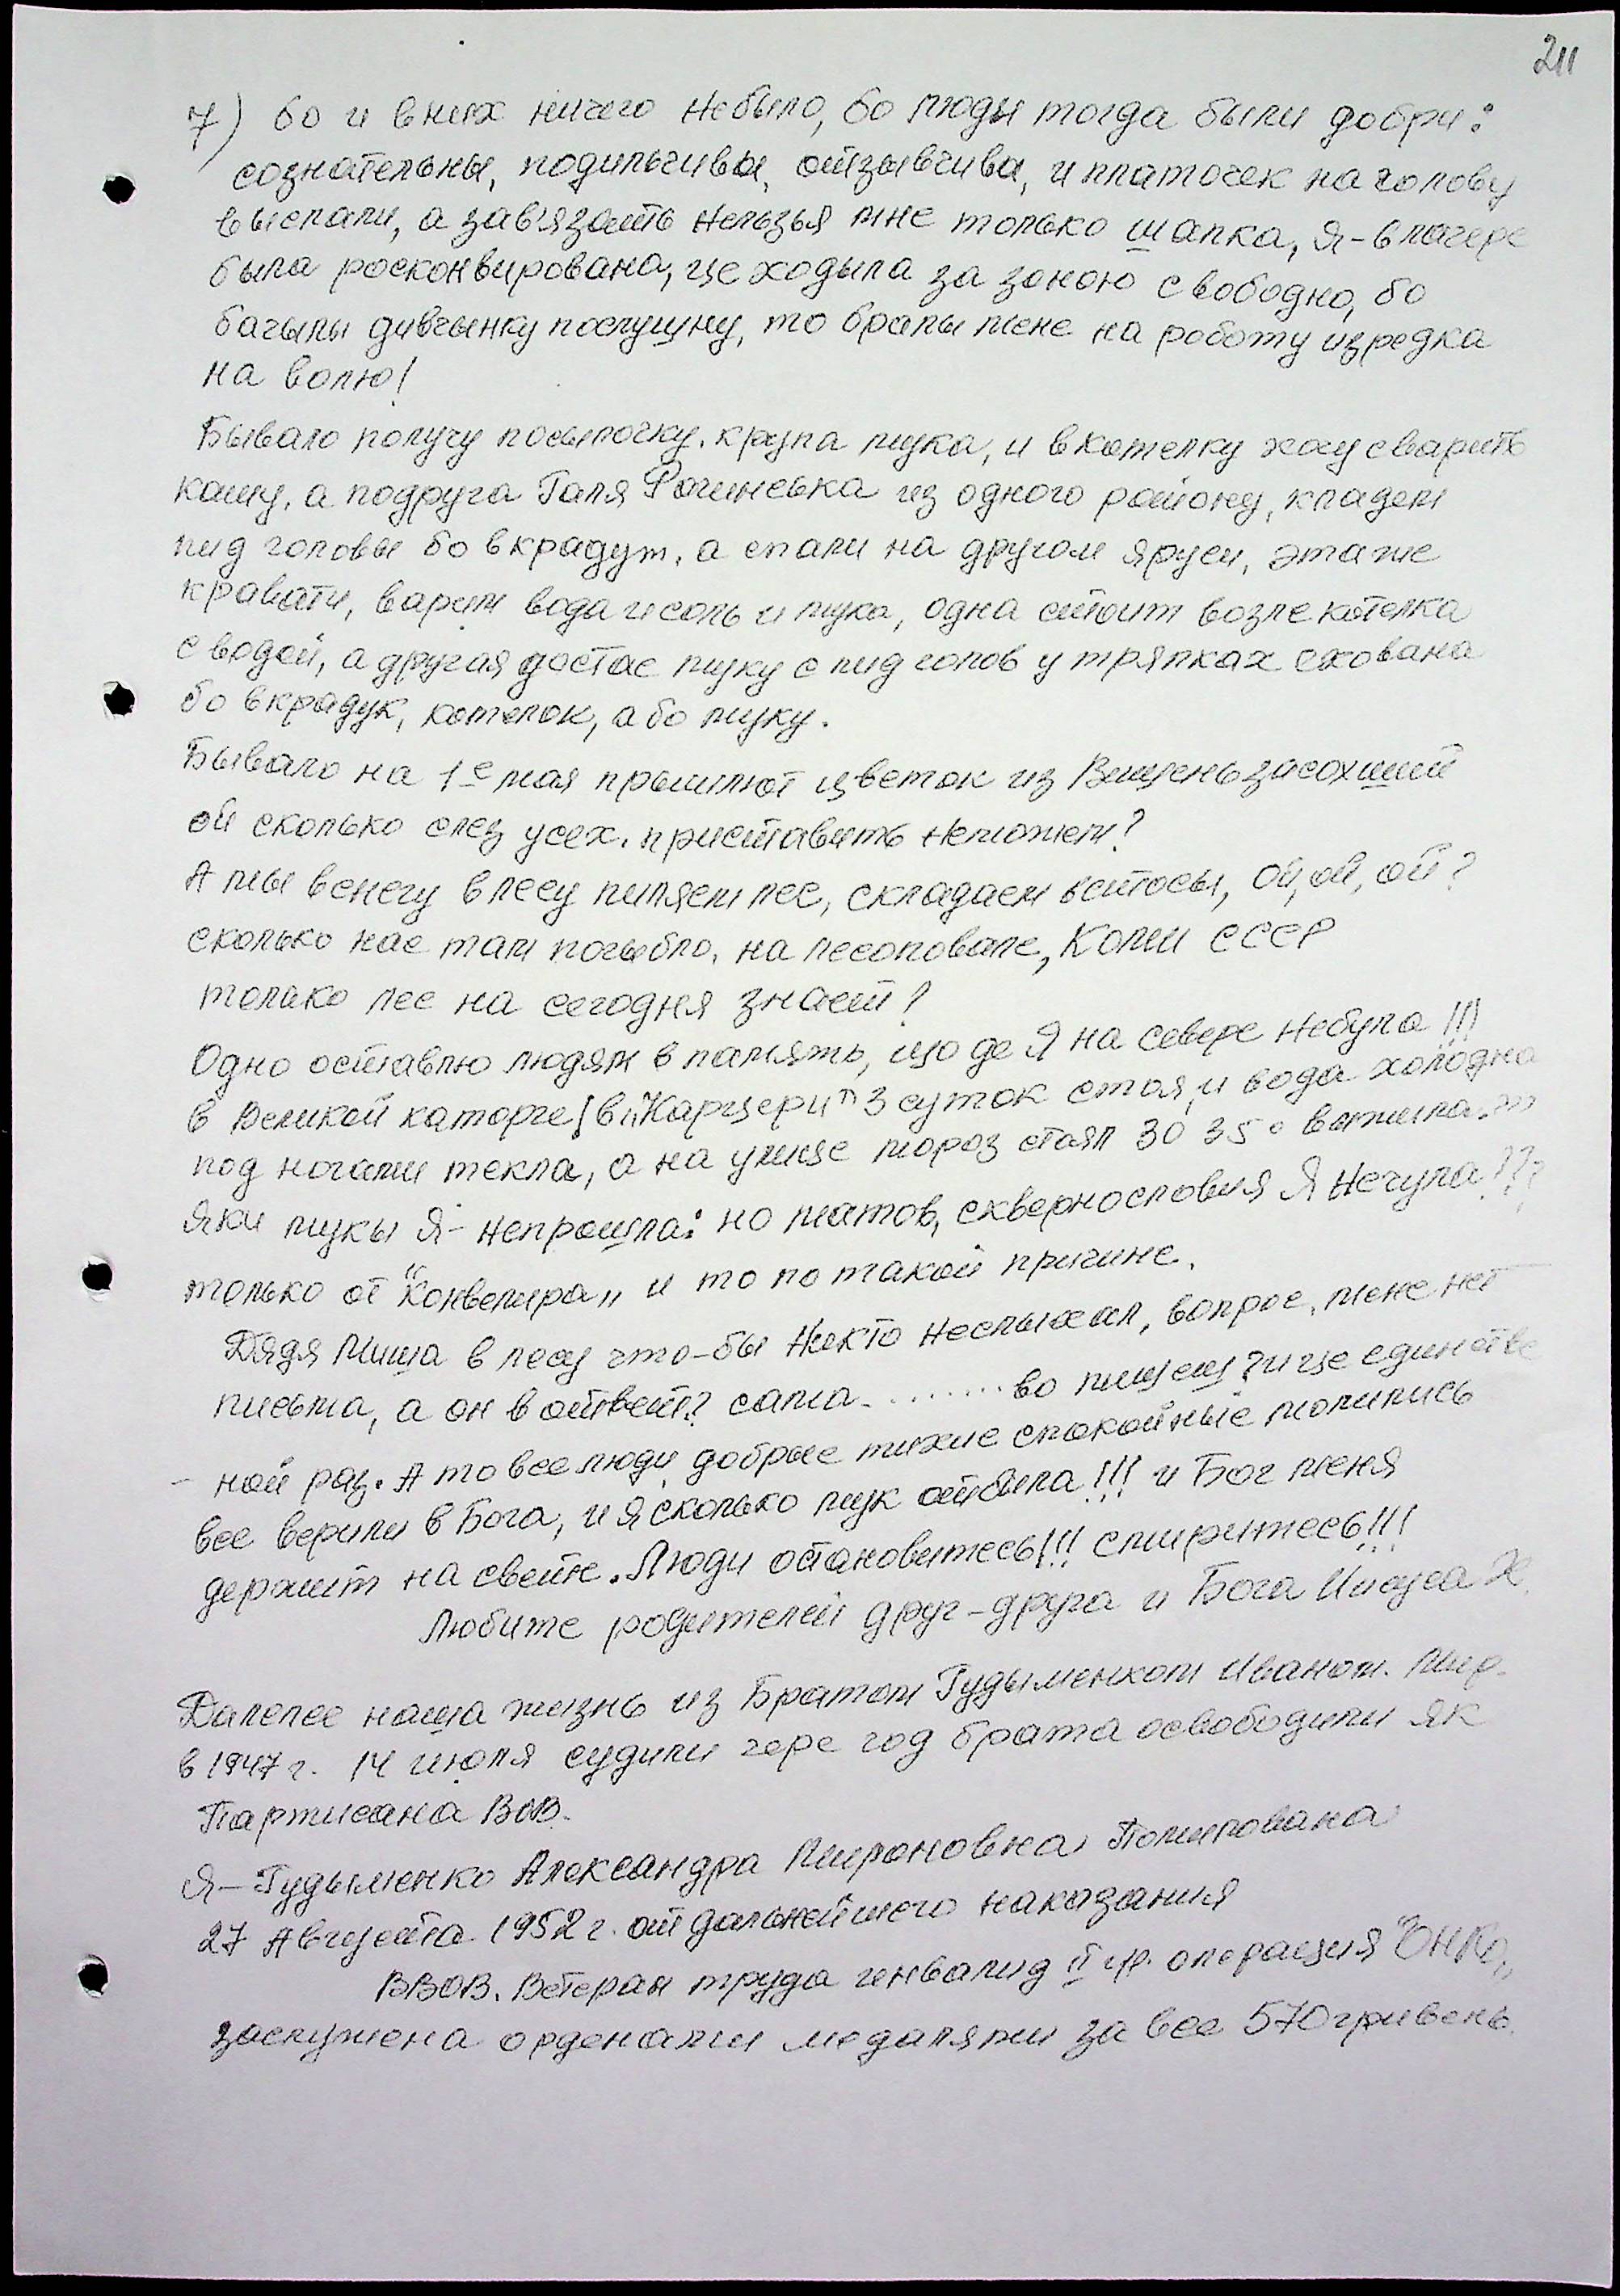 211
7) бо и в них ничего небыло, бо люды тогда были добри:
сознательны, подильчивы, отзывчива, и платочек на голову
выслали, а завязать нельзья мне только шапка, Я-в лагере
была росконвирована, це ходыла за зоною свободно, бо
бачылы дивчынку послушну, то бралы мене на роботу изредка
на волю!
Бывало получу посылочку. крупа мука, и в котелку хочу сварить
кашу, а подруга Галя из одного району, кладем
пид головы бо вкрадут, а спали на другом яруси, этаже
кравати, варим вода и соль и мука, одна стоит возле котелка
с водой, а другая достае муку с пид голов у тряпках схована
бо вкрадук, котелок, або муку.
Бывало на 1е мая прышлют цветок из Вишень засохший
ой сколько слез усех. приставить неможем?
А мы в снегу в лесу пиляем лес, складаем в штосы, Ой, ой, ой?
сколько нас там погыбло. на лесоповале, Коми СССР
только лес на сегодня знает?
Одно оставлю людям в память, що де Я на севере небула!!!
в Великой каторге! в "Карцери" 3 суток стоя, и вода холодна
под ногами текла, а на улице мороз стоял 30 35° выжила???
яки муки Я-непрошла: но матов, сквернословия Я Нечула???
только от "Конвеиира" и то по такой причине.
Дядя Миша в лесу что-бы Никто неслыхал, вопрос, мене нет
письма, а он в ответ? сама.........во пишеш? и це единстве
- ной раз. А то все люди добрые тихие спокойные молились
все верили в Бога, и я сколько мук отбыла!!! и Бог меня
держит на свете. Люди остановитесь!!! смиритесь!!!
Любите родителей друг-друга и Бога Иисуса Х.
Далелее наша жизнь из Братом Гудыменком Иваном. Мир.
в 1947 г. 14 июля судили чере год брата освободили як
Партисана ВОВ.
Я-Гудыменко Александра Мироновна Помилована
27 Августа 1952 г. от дальнейшего наказания
ВВОВ. Ветеран труда инвалид II гр. операция "ОНКО"
заслужена орденами медалями за все 570 гривень.